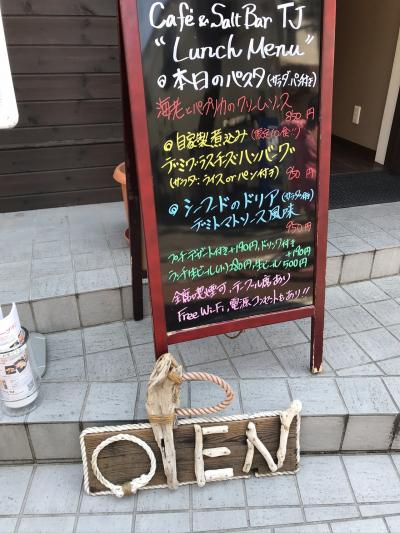 Café & Salt Bar TJ
"Lunch Menu"
◎本日のパスタ(サラダ・パン付き)
海老とパプリカのクリームソース
850円
◎自家製煮込み(限定10食)
デミグラスチーズハンバーグ
(サラダ・ライス or パン付き) 950円
◎シーフードのドリア(サラダ付)
デミトマトソース風味
950円
プチデザート付き+190円、ドリンク付き
+190円
ランチ生ビール(小)280円、生ビール500円
全席喫煙可、テーブル席あり
Free Wi-Fi、電源コンセントもあり!!
OPEN